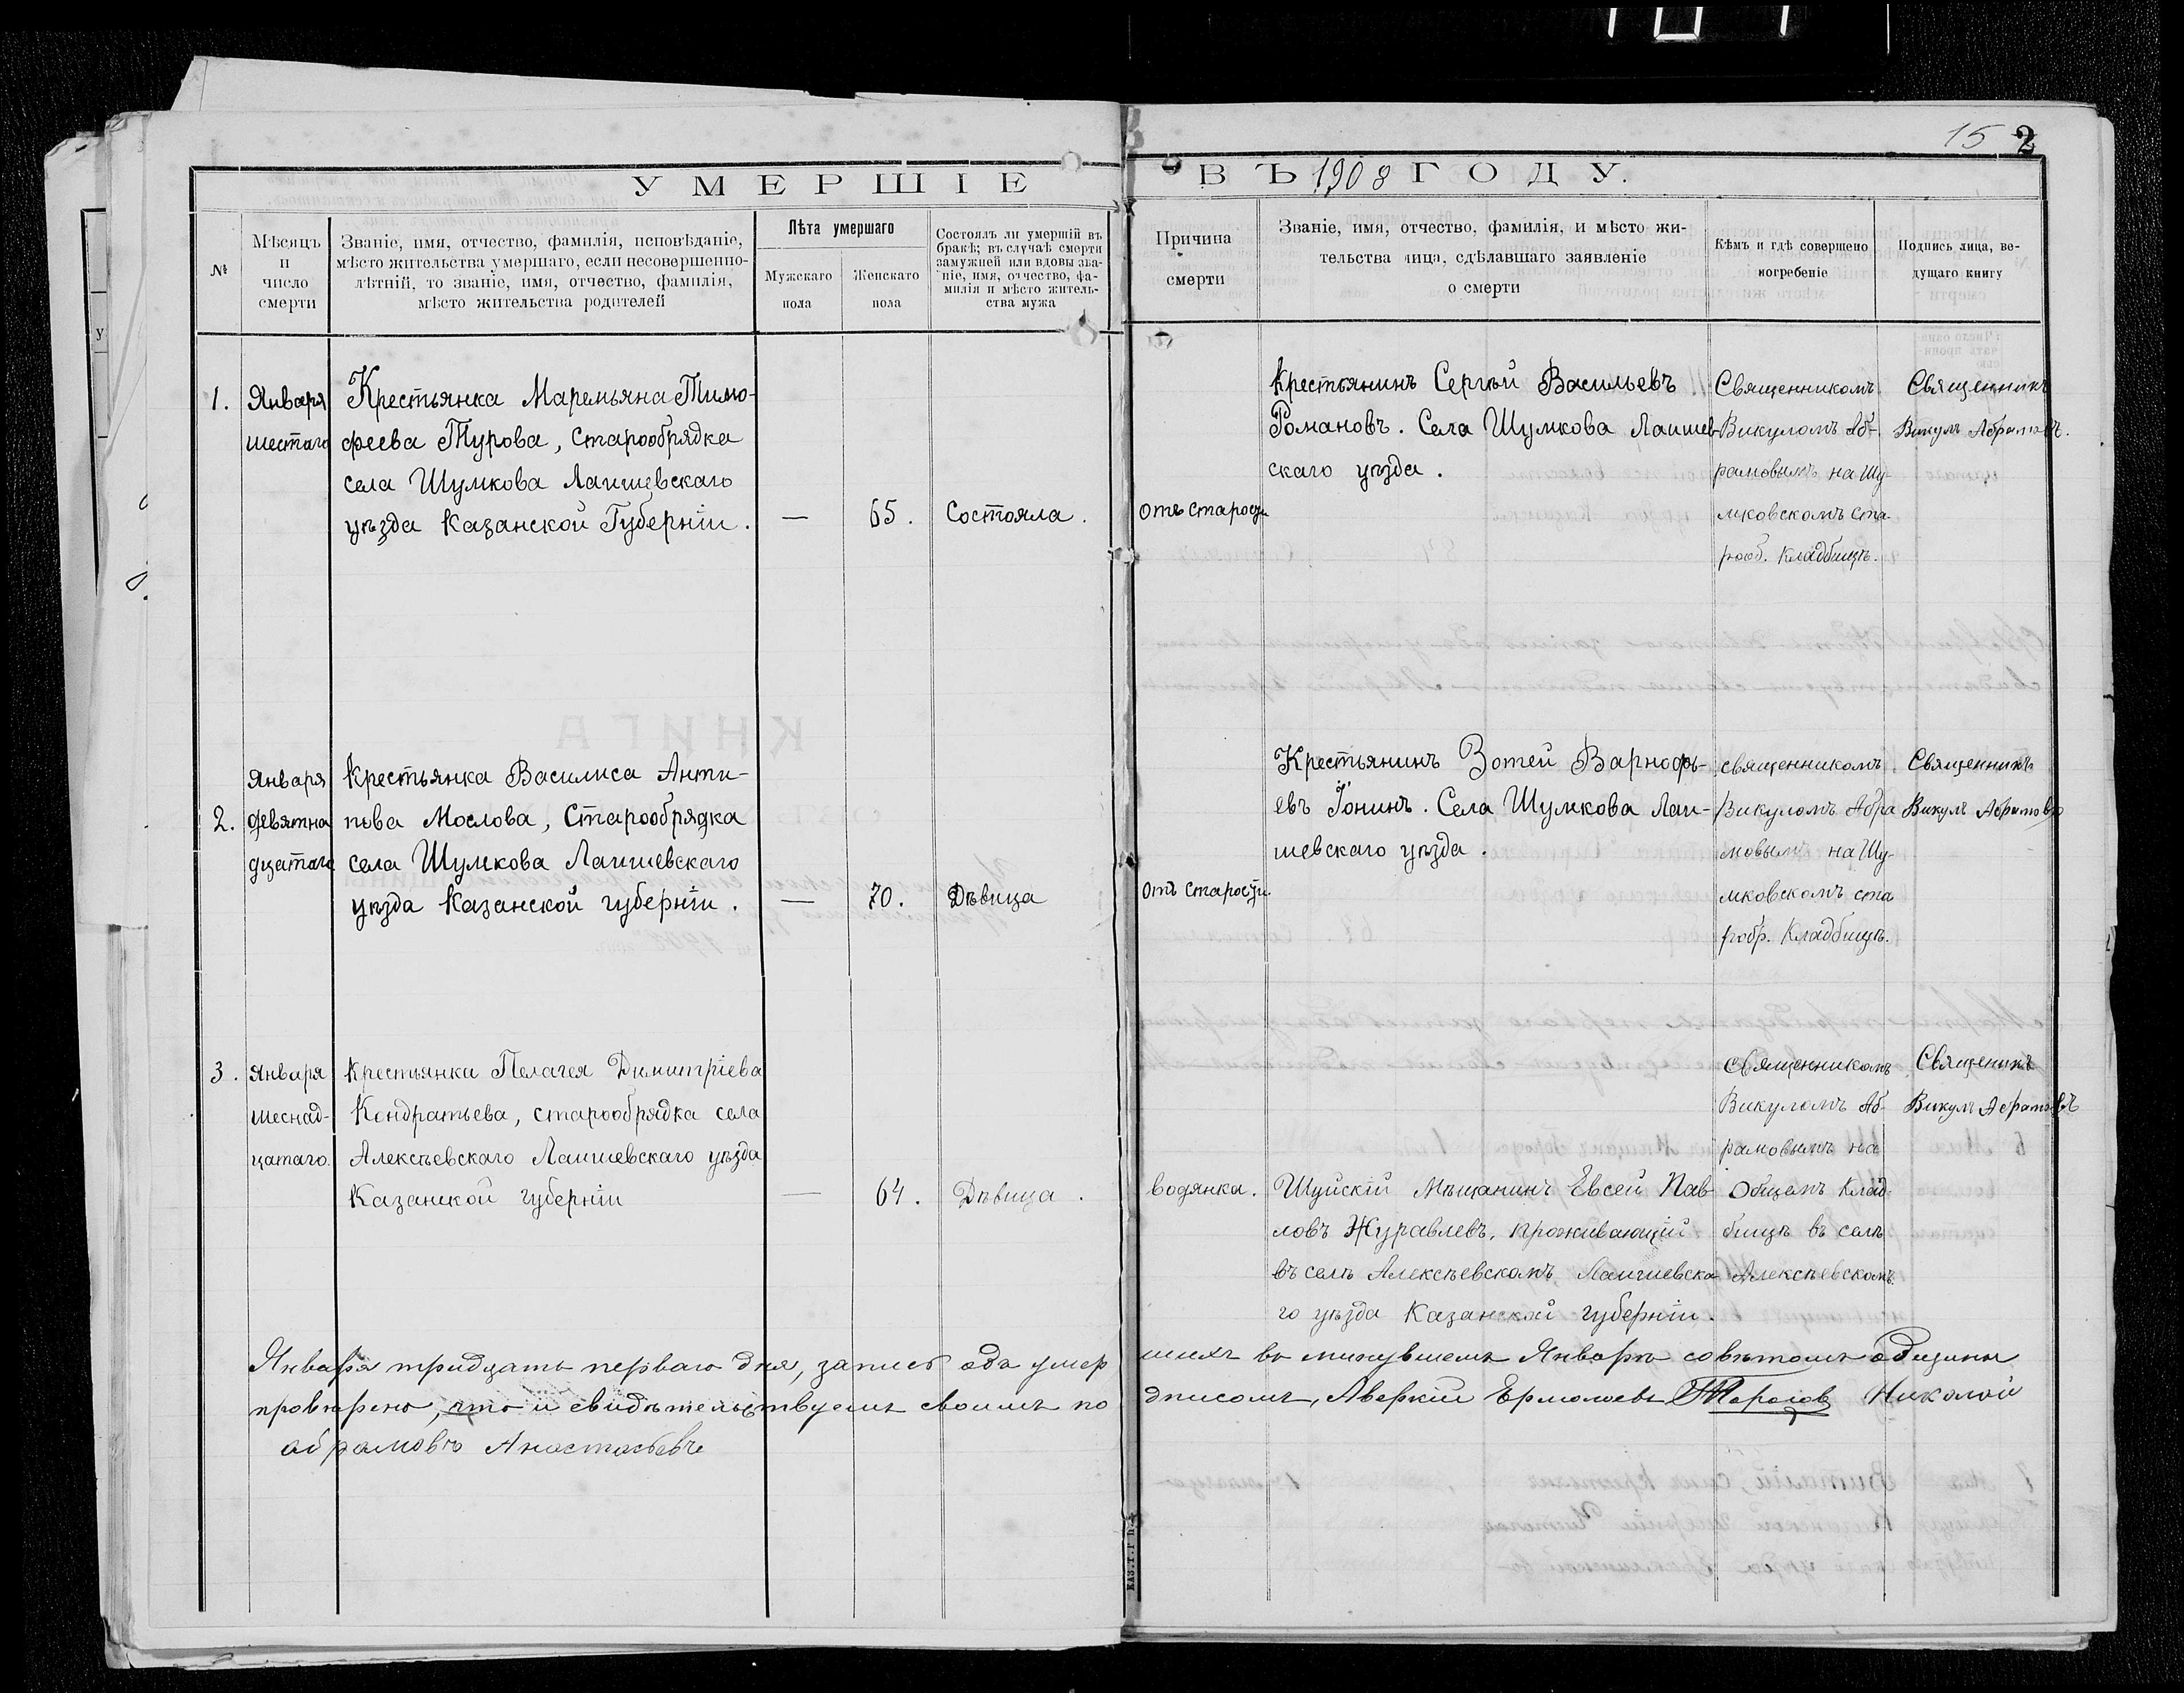 15 2
УМЕРШІЕ
ВЪ 1908 ГОДУ.
№
Мѣсяцъ
и
число
смерти
Званіе, имя, отчество, фамилія, исповѣданіе,
мѣсто жительства умершаго, если несовершенно-
лѣтній, то званіе, имя, отчество, фамилія,
мѣсто жительства родителей
Лѣта умершаго
Мужскаго
пола
Женскаго
пола
Состоялъ ли умершій въ
бракѣ; въ случаѣ смерти
замужней или вдовы зва-
ніе, имя, отчество, фа-
милія и мѣсто житель-
ства мужа
Причина
смерти
Званіе, имя, отчество, фамилія, и мѣсто жи-
тельства лица, сдѣлавшаго заявленіе
о смерти
Кѣмъ и гдѣ совершено
погребеніе
Подпись лица, ве-
дущаго книгу
1.
Января
шестаго
Крестьянка Маремьяна Тимо-
феева Турова, Старообрядка
села Шумкова Лаишевскаго
уѣзда Казанской Губерніи.
—
65.
Состояла.
Отъ старости
Крестьянинъ Сергѣй Васильевъ
Романовъ. Села Шумкова Лаишев-
скаго уѣзда.
Священникомъ
Викуломъ Аб-
рамовымъ на Шу-
мковскомъ Ста-
рооб. кладбищѣ.
Священникъ
Викулъ Абрамовъ.
2.
Января
девятна
дцатаго
Крестьянка Василиса Анти-
пова Мослова, Старообрядка
села Шумкова Лаишевскаго
уѣзда Казанской губерніи.
—
70.
Дѣвица
Отъ старости
Крестьянинъ Зотей Варнофь-
евъ Іонинъ. Села Шумкова Лаи-
шевскаго уѣзда.
священникомъ
Викуломъ Абра
мовымъ на Шу-
мковскомъ ста
робр. Кладбищѣ.
Священникъ
Викулъ Абрамовъ
3.
Января
шеснад-
цатаго.
Крестьянки Пелагея Димитріева
Кондратьева, старообрядка села
Алексѣевскаго Лаишевскаго уѣзда
Казанской губерніи
—
64.
Дѣвица.
водянка.
Шуйскій Мѣщанинъ Евсей Пав-
ловъ Журавлевъ, проживающій
въ селѣ Алексѣевскомъ Лаишевска-
го уѣзда Казанской губерніи.
священникомъ
Викуломъ Аб-
рамовымъ на
Общемъ клад-
бищѣ въ селѣ
Алексѣевскомъ.
Священикъ
Викулъ Абрамовъ
Января тридцать перваго дня, запись объ умер
шихъ въ минувшемъ Январѣ совѣтомъ общины
провѣрено, что и свидѣтельствуемъ своимъ по
дписомъ, Аверкій Ермолаевъ Николай
абрамовъ
КАЗ.Т.Г.П.